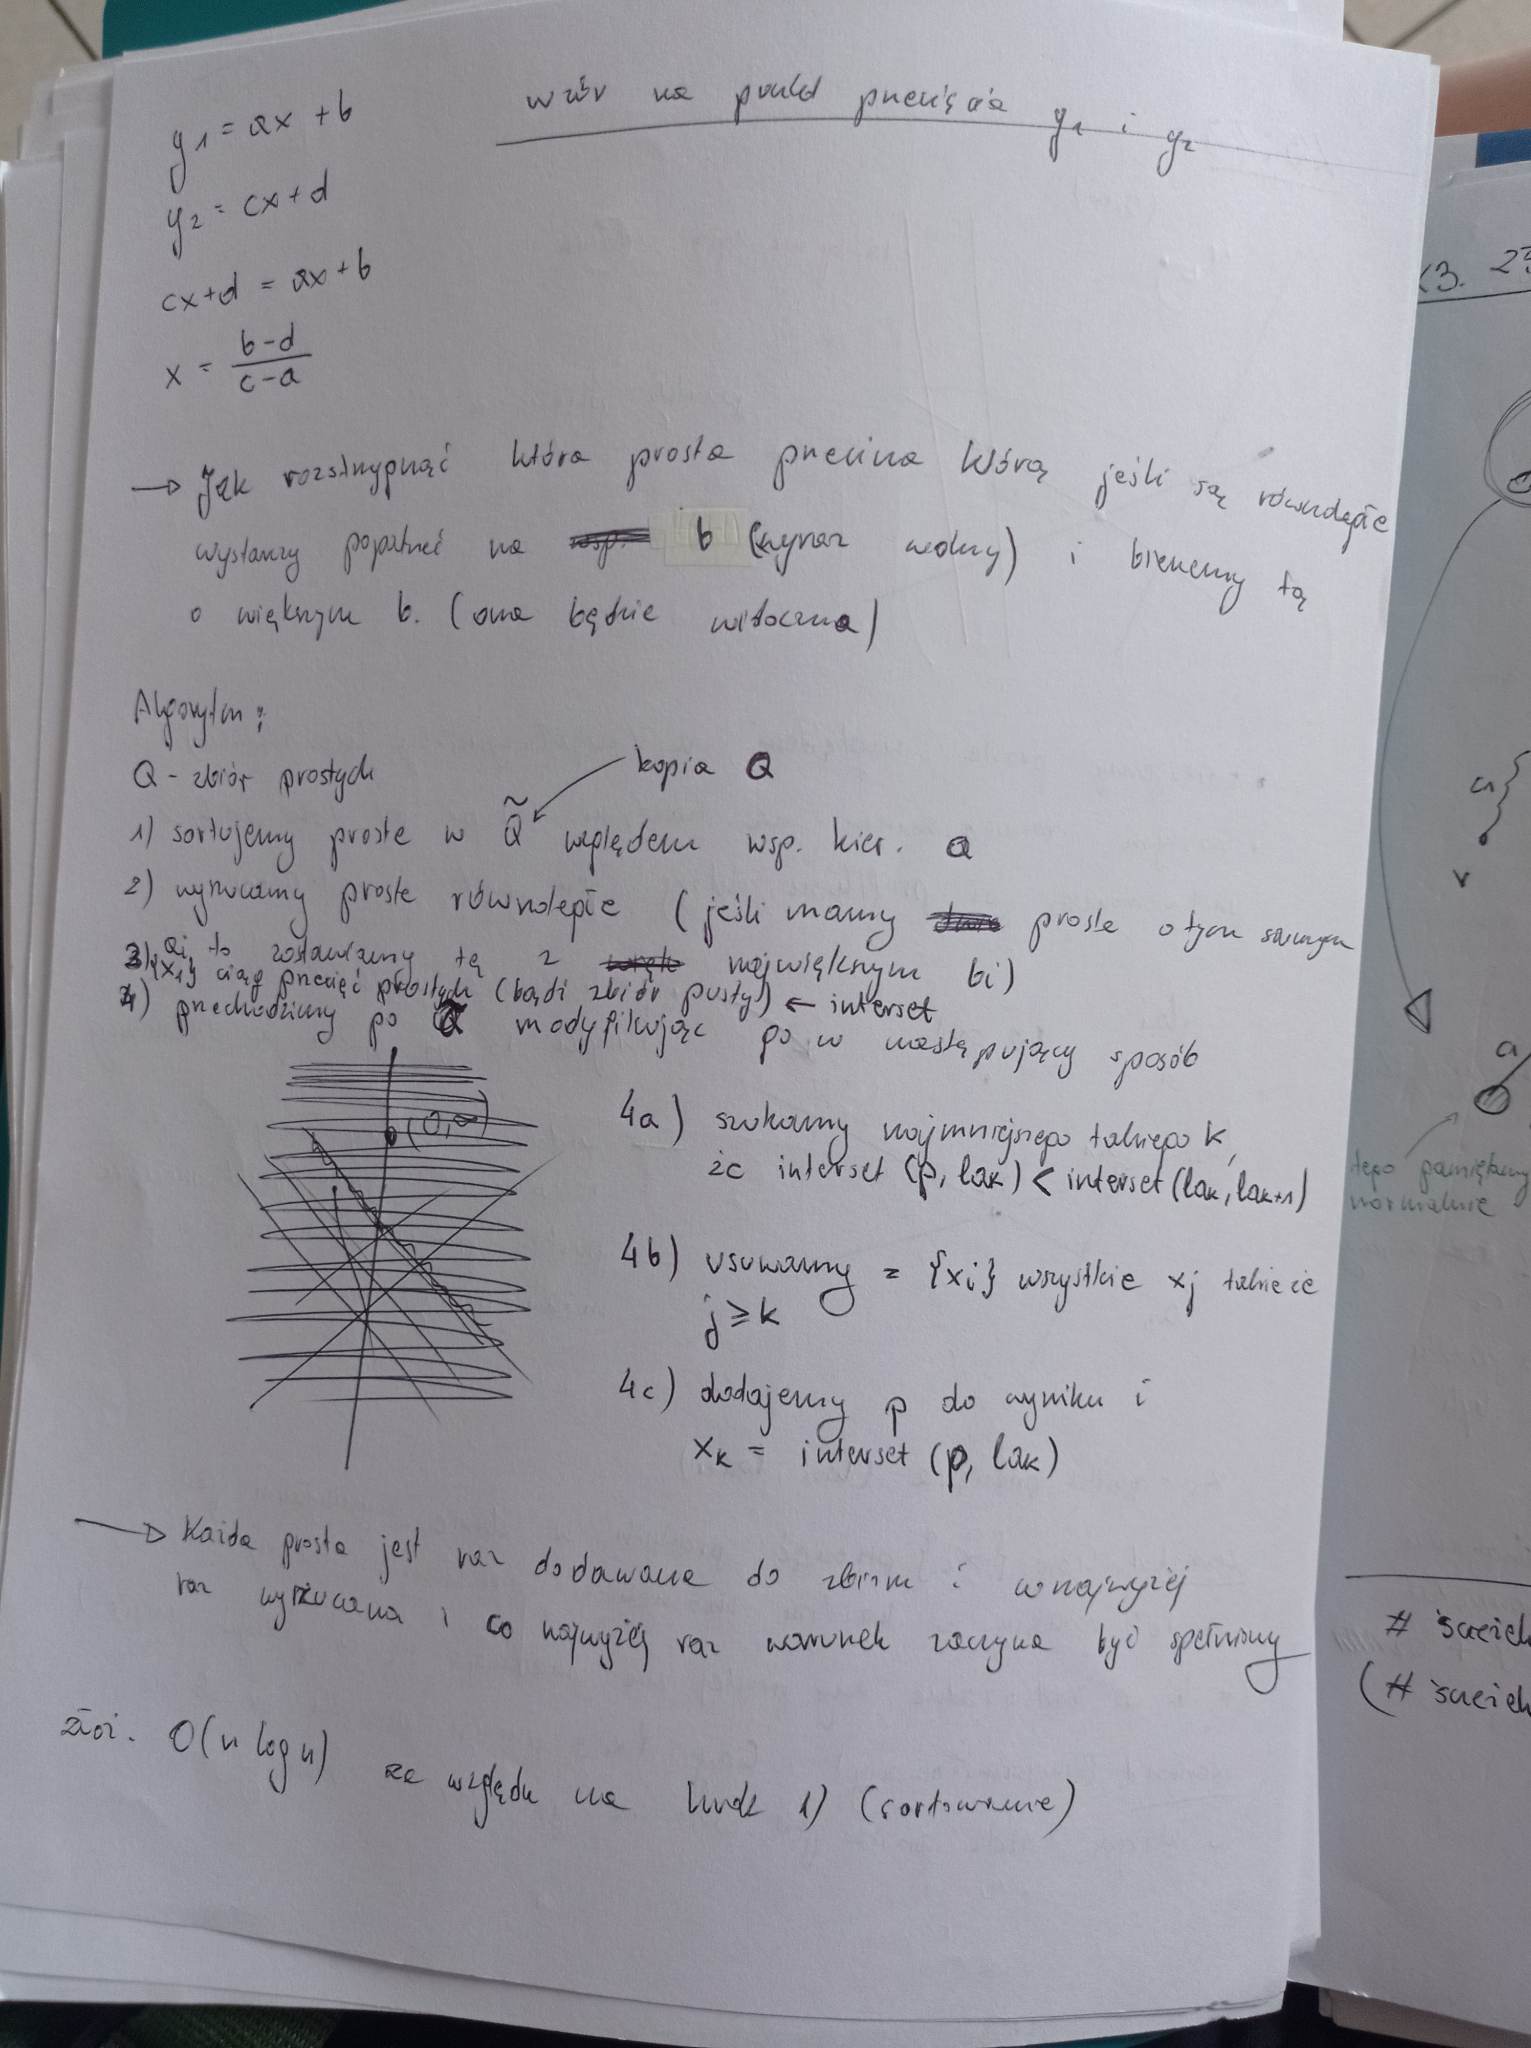 y1 = ax + b
wzór na punkt przecięcia y1 i y2
y2 = cx + d
cx + d = ax + b
x = (b-d)/(c-a)
→ Jak rozstrzygnąć która prosta przecina którą jeśli są równoległe
wystarczy popatrzeć na b (wyraz wolny) i bierzemy tą
o większym b. (ona będzie widoczna)
Algorytm:
Q - zbiór prostych
kopia Q
1) sortujemy proste w Q̃ względem wsp. kier. a
2) wyrzucamy proste równoległe (jeśli mamy proste o tym samym
ai, to zostawiamy tą z największym bi)
3) {x1} ciąg przecięć prostych (bądź zbiór pusty) ← interset
4) przechodzimy po Q̃ modyfikując go w następujący sposób
(0,∞)
4a) szukamy najmniejszego takiego k,
że interset (p, lak) < interset (lak, lak+1)
4b) usuwamy z {xi} wszystkie xj takie że
j ≥ k
4c) dodajemy p do wyniku i
xk = interset (p, lak)
→ Każda prosta jest raz dodawana do zbioru i co najwyżej
raz wyrzucana i co najwyżej raz warunek zaczyna być spełniony
złoż. O(n log n) ze względu na krok 1) (sortowanie)
a
v
a
tego pamiętamy
normalnie
# ścieżek
(# ścieżek